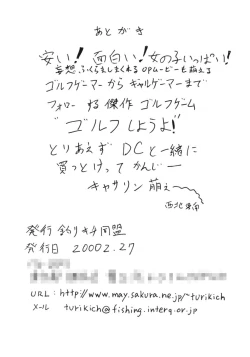 あとがき
安い!面白い!女の子いっぱい!
妄想ふくらましまくれるOPムービーも萌える
ゴルフゲーマーからギャルゲーマーまで
フォローする傑作ゴルフゲーム
"ゴルフしようよ!"
とりあえずDCと一緒に
買っとけってかんじー
キャサリン萌え〜
西北東南
発行 釣りキチ同盟
発行日 20002.27
URL: http://www.may.sakura.ne.jp/~turikich
メール turikich@fishing.interq.or.jp